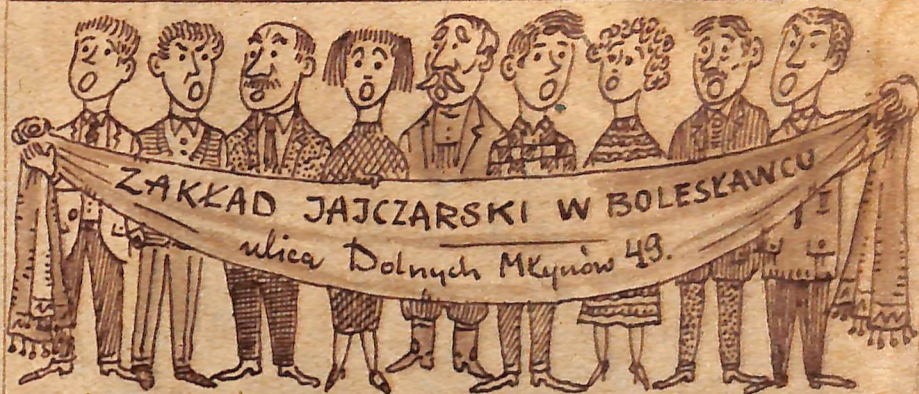 ZAKŁAD JAJCZARSKI W BOLESŁAWCU
ulica Dolnych Młynów 49.